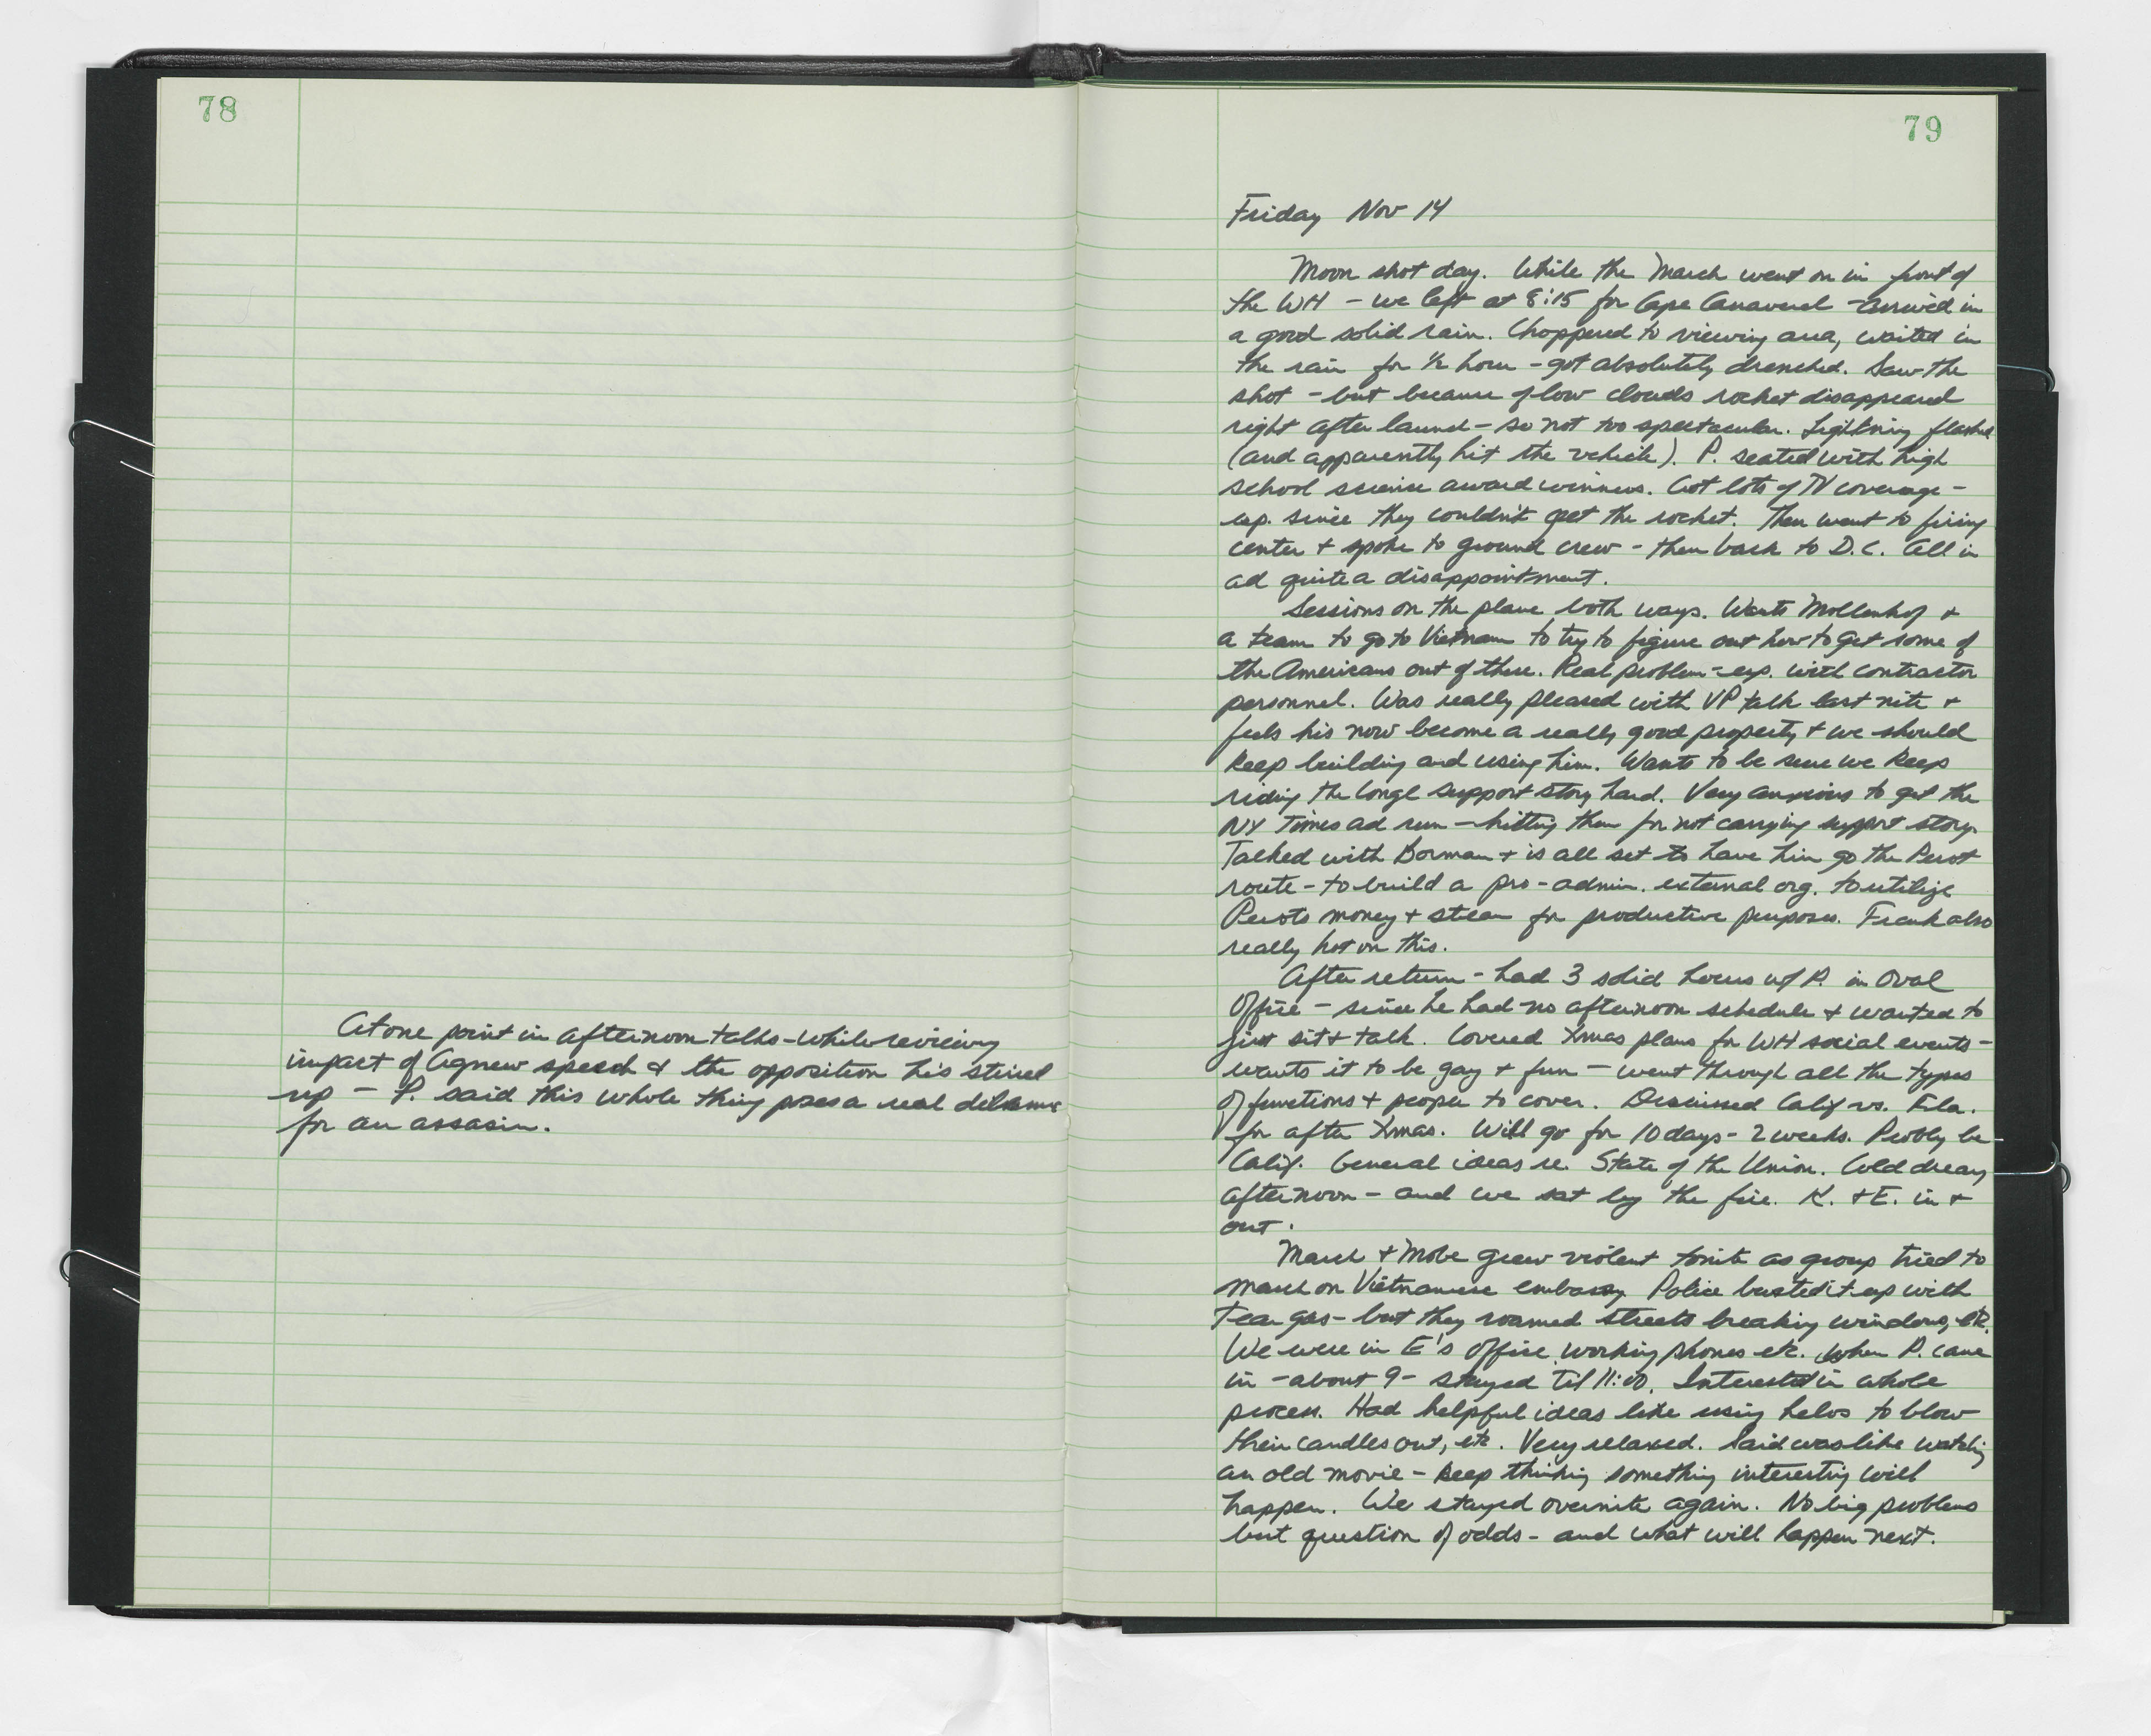 78
At one point in afternoon talks - while reviewing
impact of Agnew speech & the opposition his stirred
up - P. said this whole thing poses a real dilemma
for an assasin.
79
Friday Nov 14
Moon shot day. While the March went on in front of
the WH - we left at 8:15 for Cape Canaveral - arrived in
a good solid rain. Choppered to viewing area, waited in
the rain for ½ hour - got absolutely drenched. Saw the
shot - but because of low clouds rocket disappeared
right after launch - so not too spectacular. Lightning flashed
(and apparently hit the vehicle). P. seated with high
school science award winners. Got lots of TV coverage -
esp. since they couldn't get the rocket. Then went to firing
center + spoke to ground crew - then back to D.C. All in
all quite a disappointment.
Sessions on the plane both ways. Wants Mollenhof +
a team to go to Vietnam to try to figure out how to get some of
the Americans out of there. Real problem - esp. with contractor
personnel. Was really pleased with VP talk last nite +
feels his now become a really good property + we should
keep building and using him. Wants to be sure we keep
riding the Congl support story hard. Very anxious to get the
NY Times ad run - hitting them for not carrying support story.
Talked with Borman + is all set to have him go the Perot
route - to build a pro-admin. external org. to utilize
Perots money + steam for productive purposes. Frank also
really hot on this.
After return - had 3 solid hours w/ P. in Oval
Office - since he had no afternoon schedule + wanted to
just sit + talk. Covered Xmas plans for WH social events -
wants it to be gay + fun - went through all the types
of functions + people to cover. Discussed Calif vs. Fla.
for after Xmas. Will go for 10 days - 2 weeks. Probly be
Calif. General ideas re. State of the Union. Cold dreary
afternoon - and we sat by the fire. K. + E. in +
out.
March + Mobe grew violent tonite as group tried to
march on Vietnamese embassy Police busted it up with
Tear gas - but they roamed streets breaking windows, etc.
We were in E's office working phones etc. when P. came
in - about 9 - stayed til 11:00. Interested in whole
process. Had helpful ideas like using helos to blow
their candles out, etc. Very relaxed. Said was like watching
an old movie - keep thinking something interesting will
happen. We stayed overnite again. No big problems
but question of odds - and what will happen next.